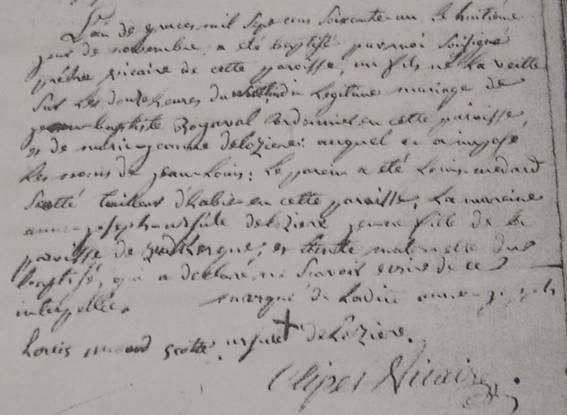 L'an de grace mil sept cens soixante un, le huitiême
jour de novembre, a été baptisé par moi soussigné
prêtre vicaire de cette paroisse, un fils né la veille
sur les douze heures du légitime mariage de
jean-baptiste Royaval cordonnier en cette paroisse,
et de marie-jeanne delozière: auquel on a imposé
les noms de jean-Louis: le parein a été Louis-medard
Scotté tailleur d'habit en cette paroisse, la mareine
anne-joseph-ursule delozière jeune fille de la
paroisse de et tante maternelle du
baptisé, qui a declaré ne scavoir écrire de ce
interpellée. marque de Ladite anne-joseph
Louis medard Scotté. ursule delozière.
Vicaire